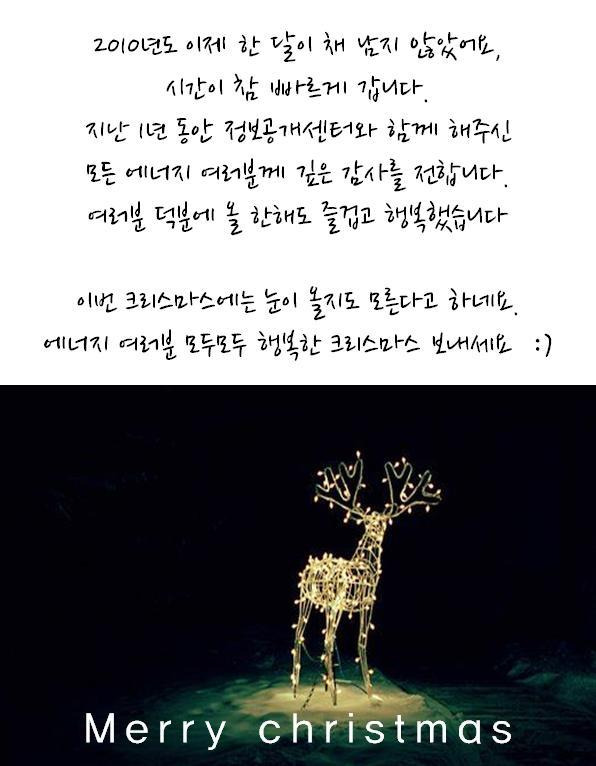 2010년도 이제 한 달이 채 남지 않았어요,
시간이 참 빠르게 갑니다.
지난 1년 동안 정보공개센터와 함께 해주신
모든 에너지 여러분께 깊은 감사를 전합니다.
여러분 덕분에 올 한해도 즐겁고 행복했습니다
이번 크리스마스에는 눈이 올지도 모른다고 하네요.
에너지 여러분 모두모두 행복한 크리스마스 보내세요 :)
Merry christmas